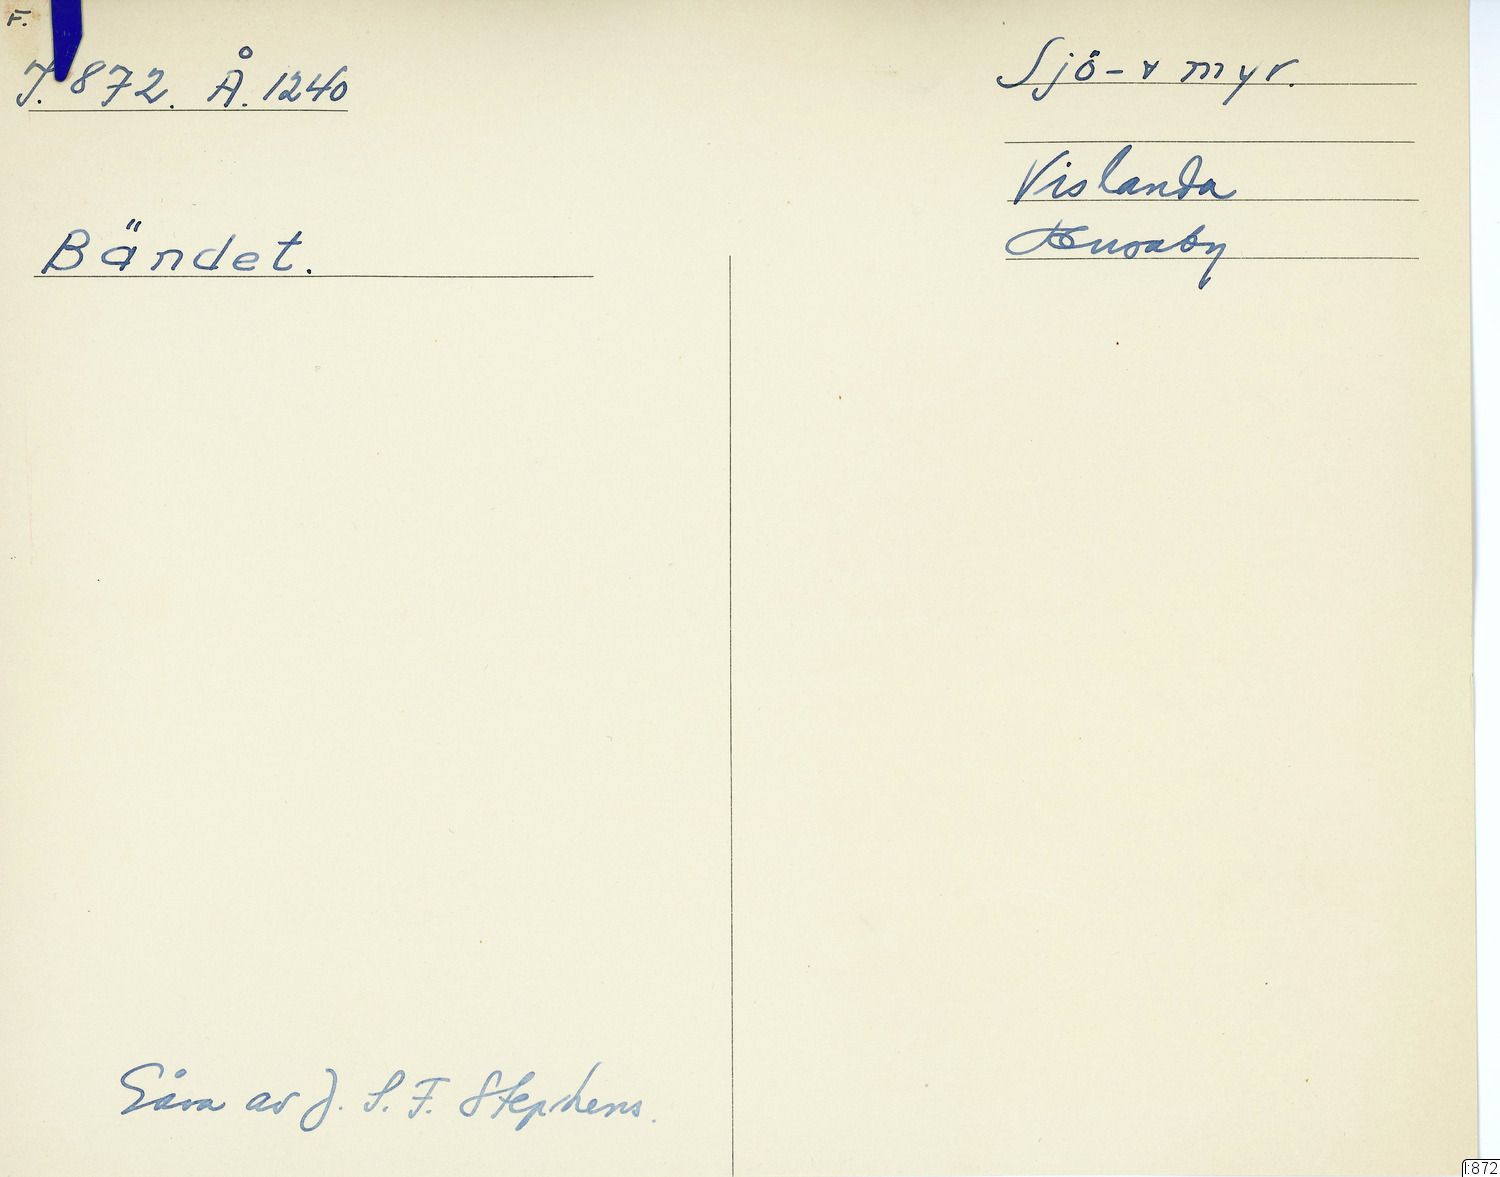 F.
J. 872. Å. 1240
Sjö- v myr.
Vislanda
Husaby
Bändet.
Gåva av J. S. F. Stephens.
I:872